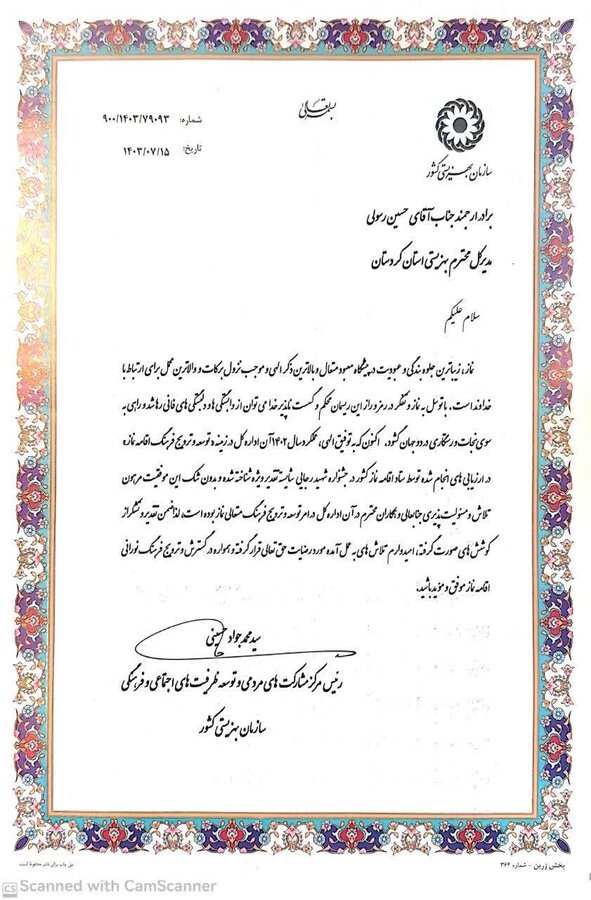 بسمه تعالی
شماره: ۹۰۰/۱۴۰۳/۷۹۰۹۳
تاریخ: ۱۴۰۳/۰۷/۱۵
سازمان بهزیستی کشور
برادر ارجمند جناب آقای حسین رسولی
مدیرکل محترم بهزیستی استان کردستان
سلام علیکم
نماز، زیباترین جلوه بندگی و عبودیت در پیشگاه معبود متعال و بالاترین ذکر الهی و موجب نزول برکات و والاترین محمل برای ارتباط با
خداوند است. با توسل به نماز و تفکر در رمز و راز این ریسمان محکم و گسست ناپذیر خدا می توان از وابستگی ها و دلبستگی های فانی رها شد و راهی به
سوی نجات و رستگاری در دو جهان گشود. اکنون که به توفیق الهی، عملکرد سال ۱۴۰۲ آن اداره کل در زمینه توسعه و ترویج فرهنگ اقامه نماز،
در ارزیابی های انجام شده توسط ستاد اقامه نماز کشور در جشنواره شهید رجایی شایسته تقدیر ویژه شناخته شده و بدون شک این موفقیت مرهون
تلاش و مسئولیت پذیری جنابعالی و همکاران محترم در آن اداره کل در امر توسعه و ترویج فرهنگ متعالی نماز بوده است، لذا ضمن تقدیر و تشکر از
کوشش های صورت گرفته، امیدوارم تلاش های به عمل آمده مورد رضایت حق تعالی قرار گرفته و همواره در گسترش و ترویج فرهنگ نورانی
اقامه نماز موفق و موید باشید.
سید محمد جواد حسینی
رئیس مرکز مشارکت های مردمی و توسعه ظرفیت های اجتماعی و فرهنگی
سازمان بهزیستی کشور
پخش زرین - شماره ۳۶۴
حق چاپ برای ناشر محفوظ است
CS Scanned with CamScanner